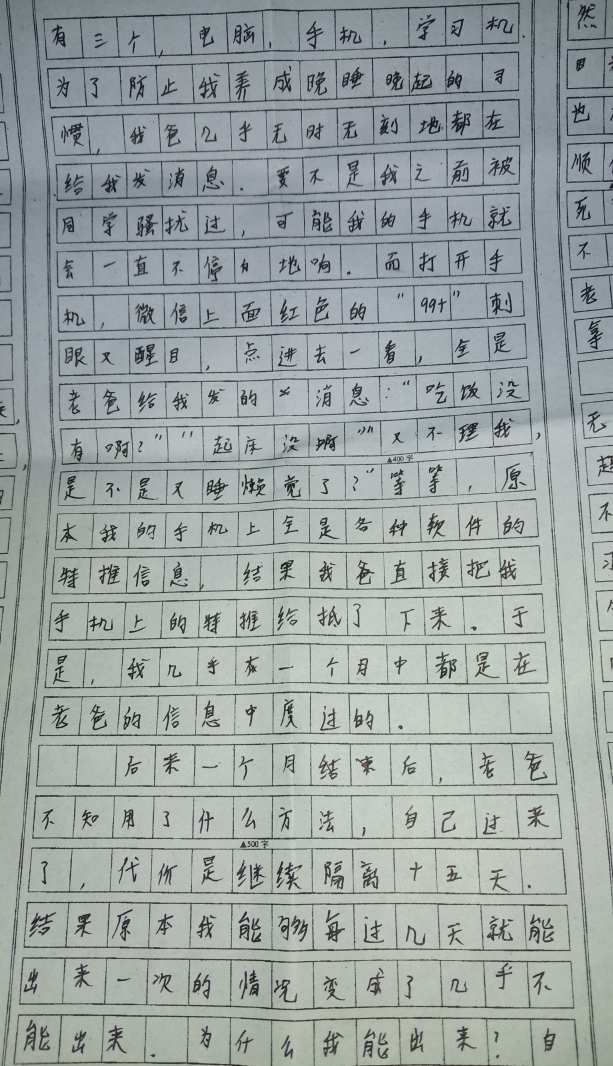 有三个,电脑,手机,学习机.
为了防止我养成晚睡晚起的习
惯,我爸几乎无时无刻地都在
给我发消息.要不是我之前被
同学骚扰过,可能我的手机就
会一直不停的地响.而打开手
机,微信上面红色的“99+”刺
眼又醒目,点进去一看,全是
老爸给我发的消息:“吃饭没
有啊?”“起床没啊”“又不理我,
是不是又睡懒觉了?”等等,原
▲400字
本我的手机上全是各种软件的
特推信息,结果我爸直接把我
手机上的特推给抵了下来.于
是,我几乎有一个月中都是在
老爸的信息中度过的.
后来一个月结束后,老爸
不知用了什么方法,自己过来
了,代价是继续隔离十五天.
▲500字
结果原本我能够每过几天就能
出来一次的情况变成了几乎不
能出来.为什么我能出来?自
然
也
顺
死
不
老
拿
无
起
不